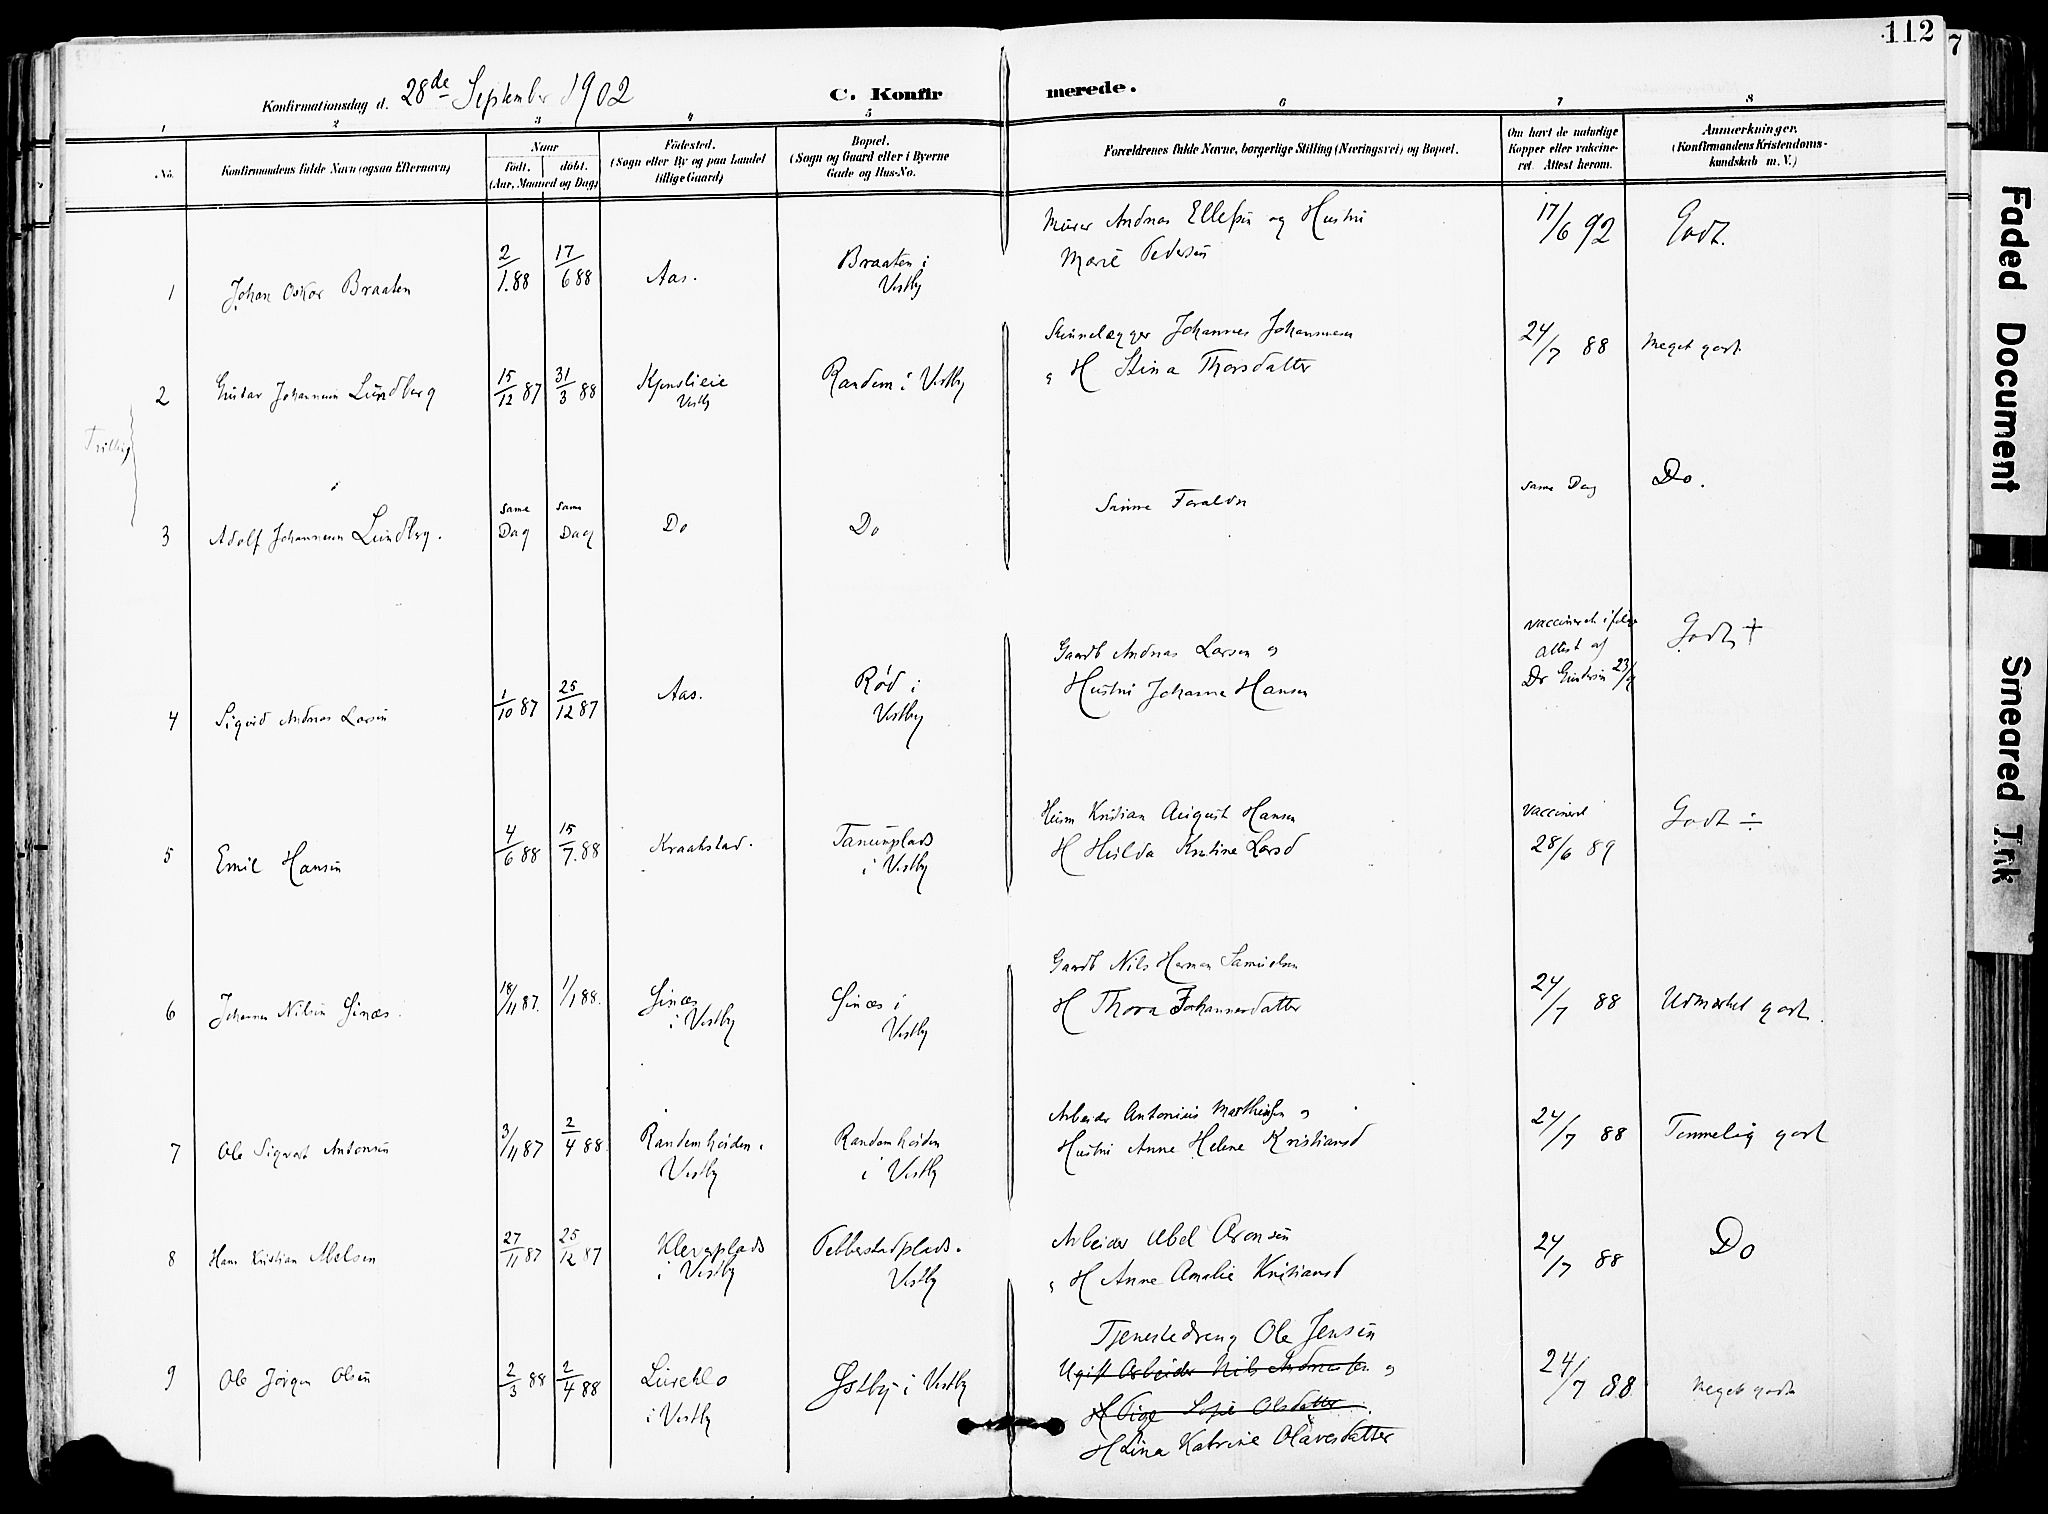 112
7
Konfirmationsdag d. 28de September 1902
C. Konfirmerede.
1 2 3 4 5 6 7 8
No.
Konfirmandens fulde Navn (ogsaa Efternavn)
Naar
født. døbt.
(Aar, Maaned og Dag)
Fødested.
(Sogn eller By og paa Landet
tillige Gaard)
Bopæl.
(Sogn og Gaard eller i Byerne
Gade og Hus-No.
Forældrenes fulde Navne, borgerlige Stilling (Næringsvei) og Bopæl.
Om havt de naturlige
Kopper eller vakcine-
ret. Attest herom.
Anmerkninger.
(Konfirmandens Kristendoms-
kundskab m. V.)
1 Johan Oskar Braaten
2/1.88 17/6 88
Aas.
Braaten i
Vestby
Murer Andreas Ellefsen og Hustru
Marie Pedersen
17/6 92
Godt.
2 Gustav Johannesen Lundberg
15/12 87 31/3 88
Vestby
Randem i Vestby
Johannes Johannesen
H Stina Thorsdatter
24/7 88
Meget godt.
3 Adolf Johannesen Lundberg.
same Dag same Dag
Do
Do
Samme Foraldre
same Dag
Do.
4 Sigurd Andreas Larsen
1/10 87 25/12 87
Aas.
Rød i
Vestby
Gaardb Andreas Larsen og
Hustru Johanne Hansen
vaccineret ifølge
attest af
Dr
Godt +
5 Emil Hansen
4/6 88 15/7.88
Kraakstad.
Tanumplads
i Vestby
Husm Kristian August Hansen
H Hulda Kristine Larsd
vaccineret
28/6 89
Godt ÷
6 Johannes Nilsen Sinæs.
18/11 87. 1/1 88.
Sinæs
i Vestby
Sinæs i
Vestby
Gaardb Nils Herman Samuelsen
H Thora Johannesdatter
24/7 88
Udmærket godt.
7 Ole Sigvart Antonsen
3/11 87 2/4 88.
Randemhøiden i
Vestby
Randemhøiden
i Vestby
Arbeider Antonius Mathisen og
Hustru Anne Helene Kristiansd
24/7 88
Temmelig godt
8 Hans Kristian Abelsen
27/11 87 25/12 87
Kleverplads
i Vestby
Pebberstadplads.
Vestby
Arbeider Abel Aronsen
og H Anne Amalie Kristiansd
24/7 88
Do
9 Ole Jørgen Olsen
2/3 88 2/4 88
i Vestby
Østby i Vestby
Tjenestedreng Ole Jensen
Ugift Arbeider Nils Andreasen og
H Pige Sofie Olsdatter
H Lina Katrine Olavesdatter
24/7 88
Meget godt
Faded Document
Smeared Ink